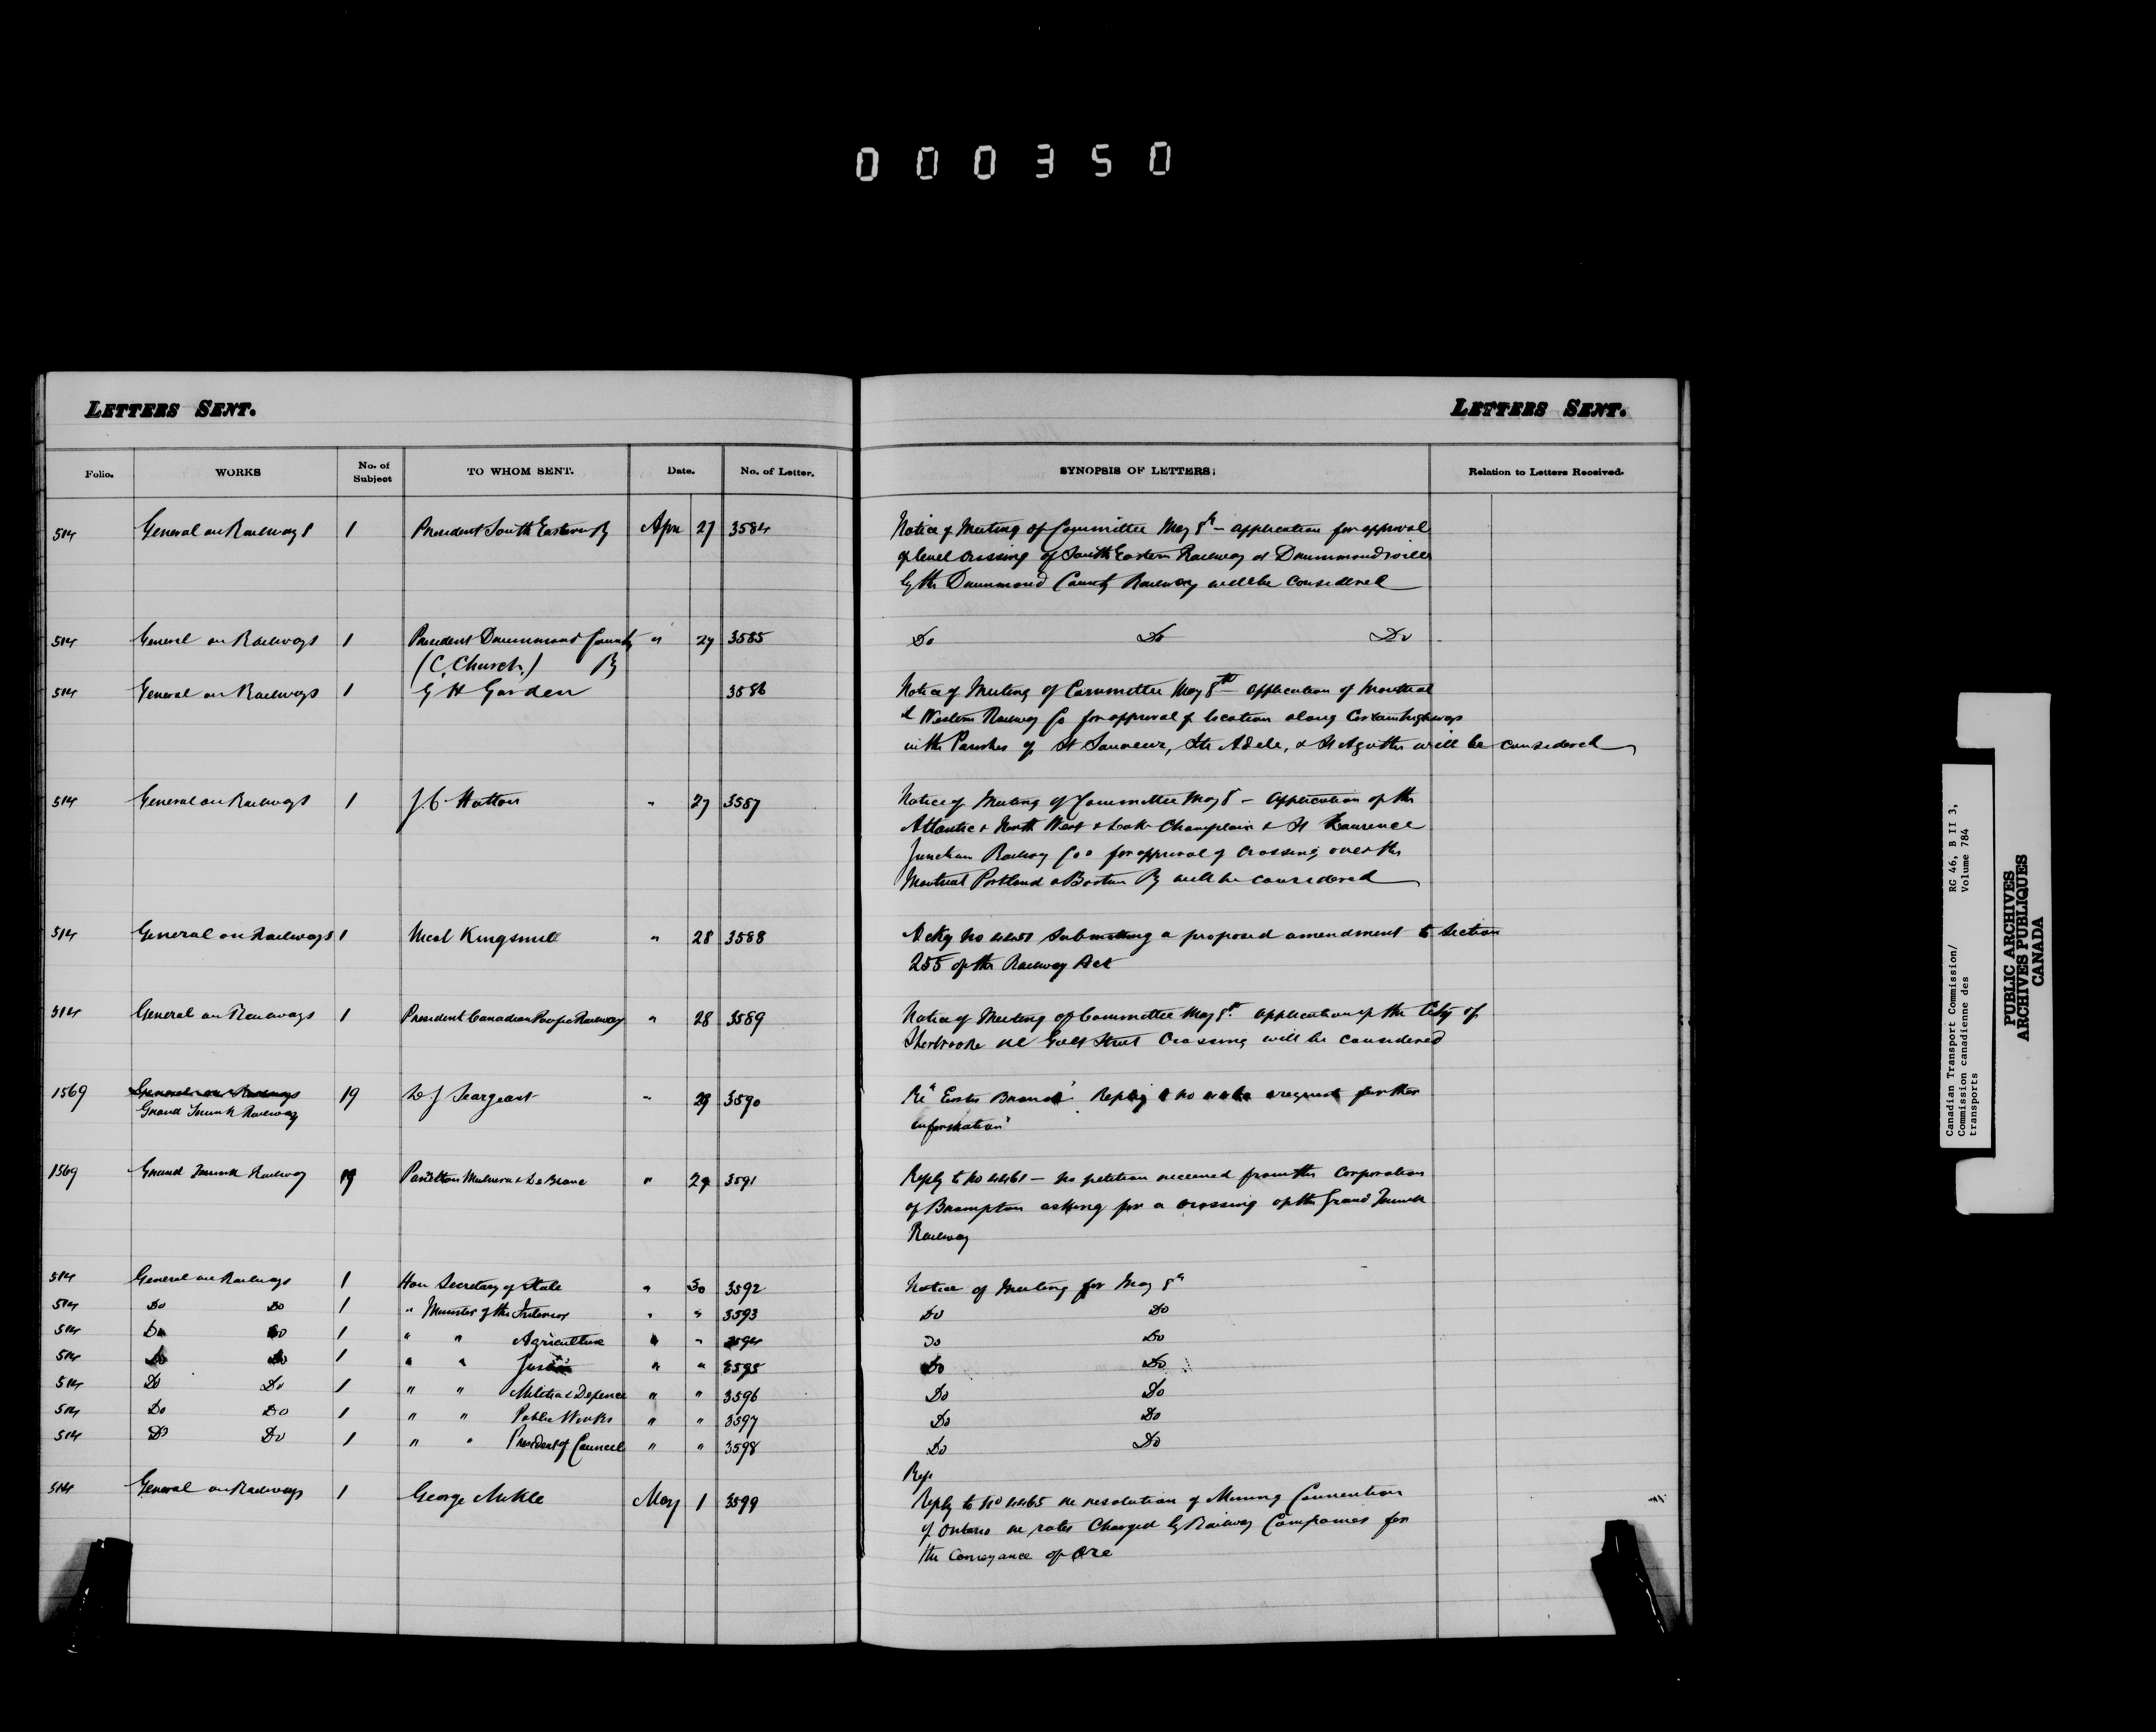 000350
LETTERS SENT.
Folio. WORKS No. of Subject TO WHOM SENT. Date. No. of Letter.
514 General on Railways 1 President South Eastern Ry Apr 27 3584
514 General on Railways 1 President Drummond County " 27 3585
(C. Church.) Ry
514 General on Railways 1 G H Garden 3586
514 General on Railways 1 J.C. Hatton " 27 3587
514 General on Railways 1 Kingsmill " 28 3588
514 General on Railways 1 President Canadian Pacific Railway " 28 3589
1569 General on Railways 19 L J Seargeant " 29 3590
Grand Trunk Railway
1569 Grand Trunk Railway 19 " 29 3591
514 General on Railways 1 Hon Secretary of State " 30 3592
514 Do Do 1 " Minister of the Interior " " 3593
514 Do Do 1 " " Agriculture " " 3594
514 Do Do 1 " " Justice " " 3595
514 Do Do 1 " " Militia & Defence " " 3596
514 Do Do 1 " " Public Works " " 3597
514 Do Do 1 " " President of Council " " 3598
514 General on Railways 1 George Mickle May 1 3599
LETTERS SENT.
SYNOPSIS OF LETTERS. Relation to Letters Received.
Notice of Meeting of Committee May 8th – application for approval
of level crossing of South Eastern Railway at Drummondville
by the Drummond County Railway will be considered
Do Do Do
Notice of Meeting of Committee May 8th – application of Montreal
& Western Railway Co for approval of location along certain highways
in the Parishes of St Sauveur, Ste Adele, & St Agathe will be considered
Notice of Meeting of Committee May 8 – Application of the
Atlantic & North West & Lake Champlain & St Lawrence
Junction Railway Cos for approval of crossing over the
Montreal Portland & Boston Ry will be considered
Ackg No submitting a proposed amendment to Section
255 of the Railway Act
Notice of Meeting of Committee May 8th application of the City of
Sherbrooke re Street Crossing will be considered
Re " No request further
information"
Reply to No 4461 – no petition received from the Corporation
of Brampton asking for a crossing of the Grand Trunk
Railway
Notice of Meeting for May 8th
Do Do
Do Do
Do Do
Do Do
Do Do
Do Do
Rep
Reply to No 4465 re resolution of Mining Convention
of Ontario re rates charged by Railway Companies for
the conveyance of Ore
Canadian Transport Commission/ RG 46, B II 3,
Commission canadienne des Volume 784
transports
PUBLIC ARCHIVES
ARCHIVES PUBLIQUES
CANADA